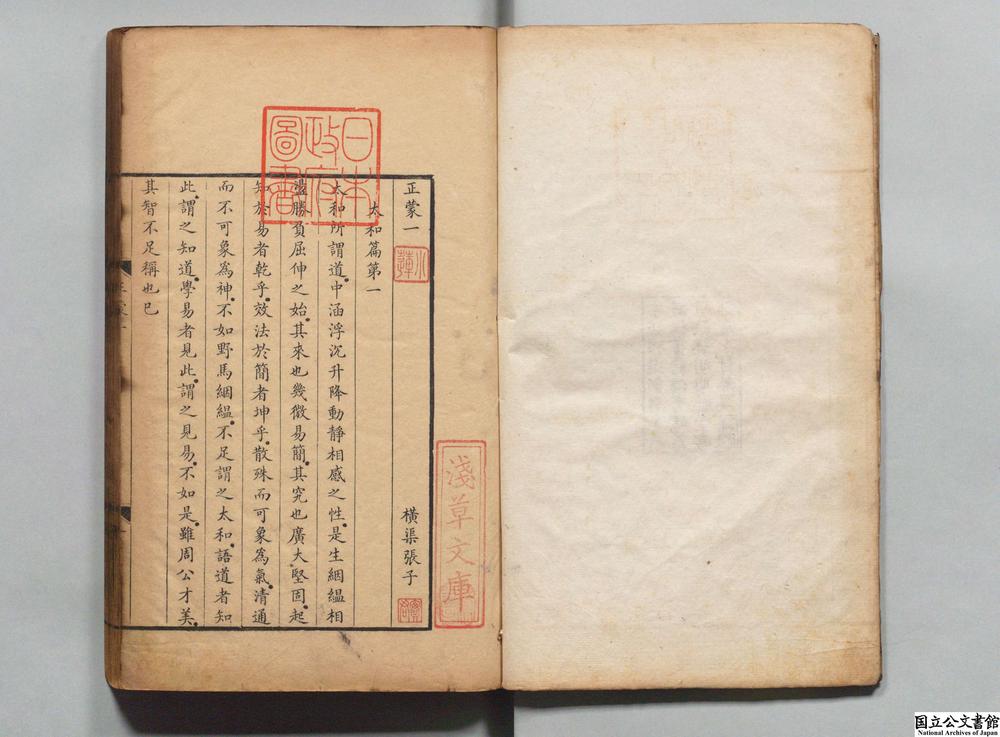 正蒙一 橫渠張子
太和篇第一
太和所謂道中涵浮沉升降動靜相感之性是生絪縕相
盪勝負屈伸之始其來也幾微易簡其究也廣大堅固起
知於易者乾乎效法於簡者坤乎散殊而可象為氣清通
而不可象為神不如野馬絪縕不足謂之太和語道者知
此謂之知道學易者見此謂之見易不如是雖周公才美
其智不足稱也已
日本
政府
圖書
淺草文庫
国立公文書館
National Archives of Japan